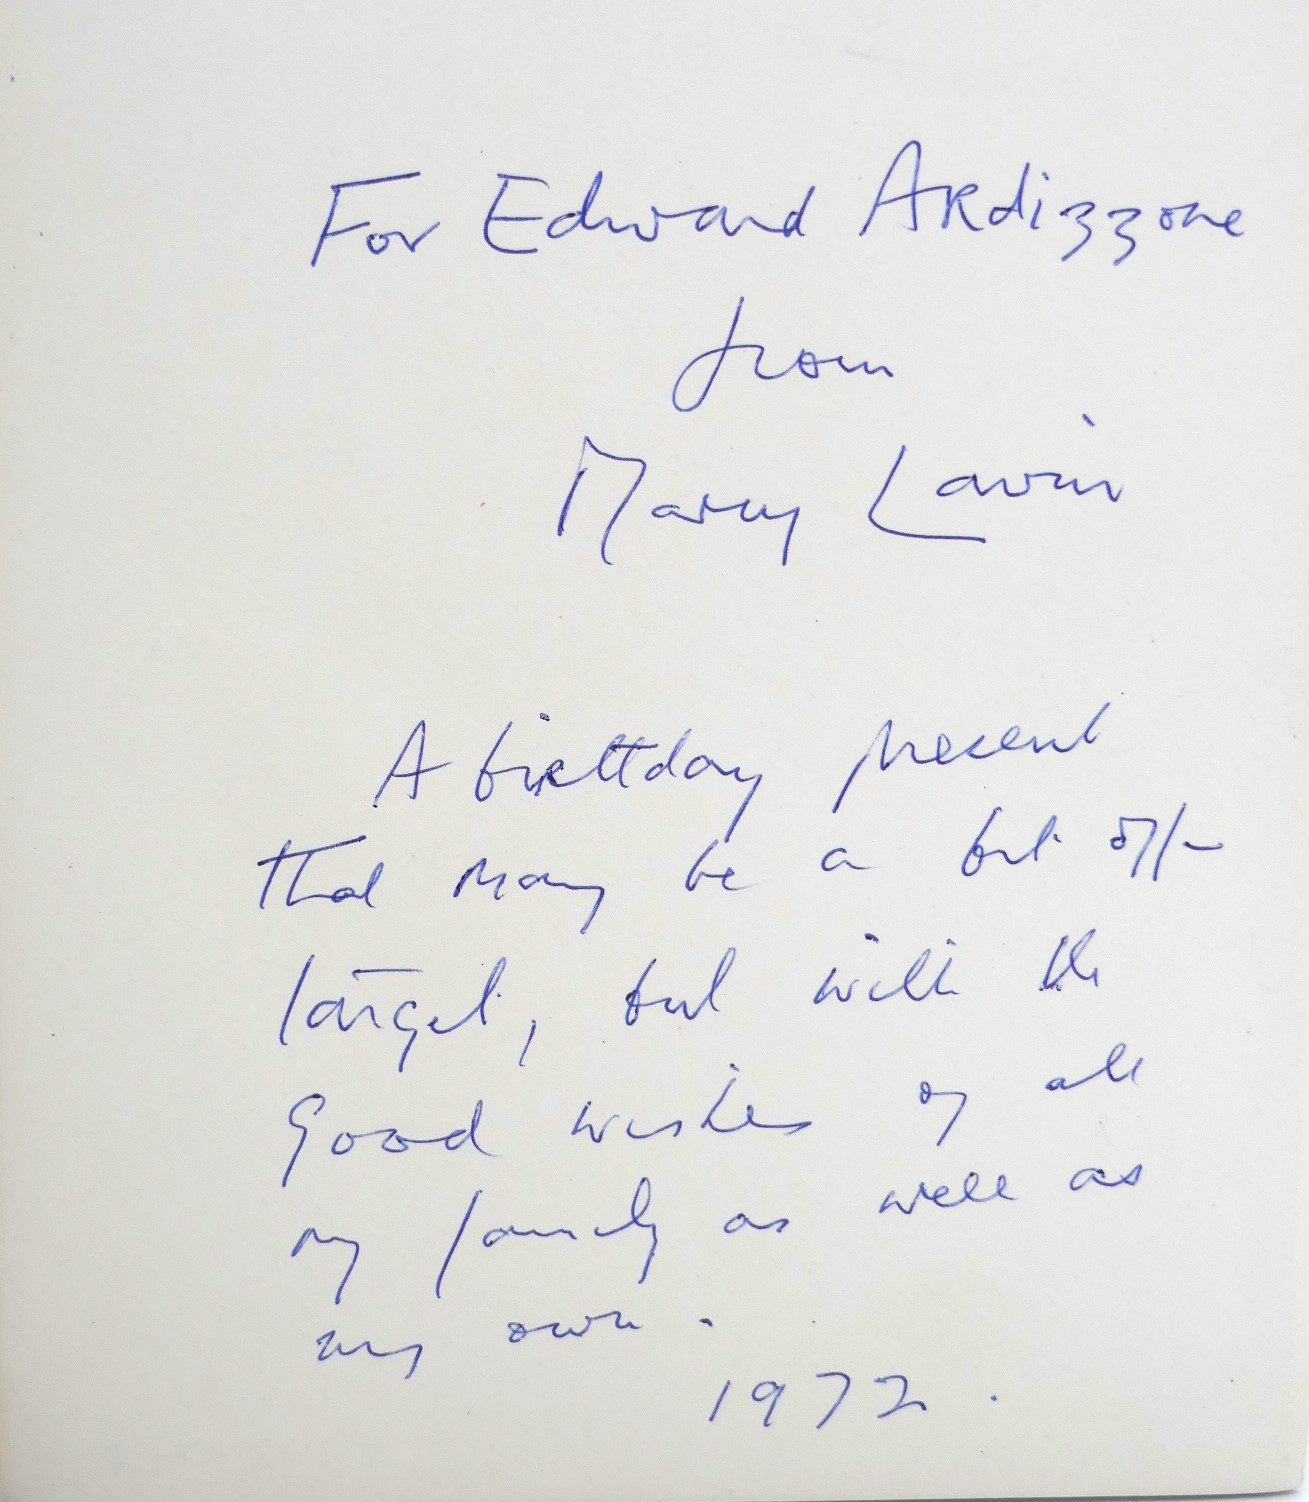 For Edward Ardizzone
from
Mary Lavin
A birthday present
that may be a bit off-
target, but with the
good wishes of all
my family as well as
my own.
1972.